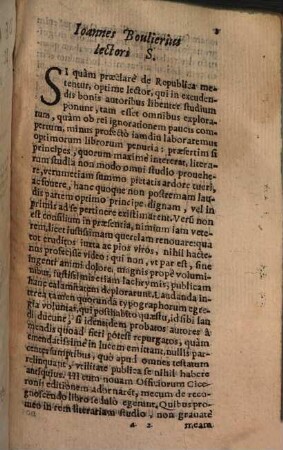 Ioannes Boulierius
lectori S.
SI quàm præclarè de Republica me-
rentur, optime lector, qui in excuden-
dis bonis autoribus libenter studium
ponunt, tam esset omnibus explora-
tum, quàm ob rei ignorationem paucis com-
pertum, minus profectò iamdiu laboraremus
optimorum librorum penuria: præsertim si
principes, quorum maximè interest, litera-
rum studia non modo omni studio prouehe-
re, verumetiam summo pietatis ardore tueri,
ac fouere, hanc quoque non postremam lau-
dis partem optimo principe dignam, vel in
primis ad se pertinere existimarent. Verùm non
est consilium in præsentia, nimium iam vetere-
rem, licet iustissimam querelam renouare: qua
tot eruditos iuxta ac pios viros, nihil hacte-
nus profecisse video: qui non, vt par est, sine
ingenti animi dolore, magnis propè volumi-
nibus, iustissimisque etiam lachrymis, publicam
hanc calamitatem deplorarunt. Laudanda in-
terea tamen quorunda typographorum egre-
gia voluntas, qui posthabito quæstu, id sibi lau-
di ducunt, si identidem probatos autores à
mendis quoad fieri potest repurgatos, quàm
emendatissimè in lucem emittant. nullis par-
centes sumptibus, quò apud omnes testatum
relinquant, vtilitate publica se nihil habere
antiquius. Hi cum nouam Officiorum Cice-
ronis editionem adornarēt, mecum de reco-
gnoscendo libro sedulo egerunt. Quibus pro
meo in rem literariam studio, non grauatè
a 2 meam